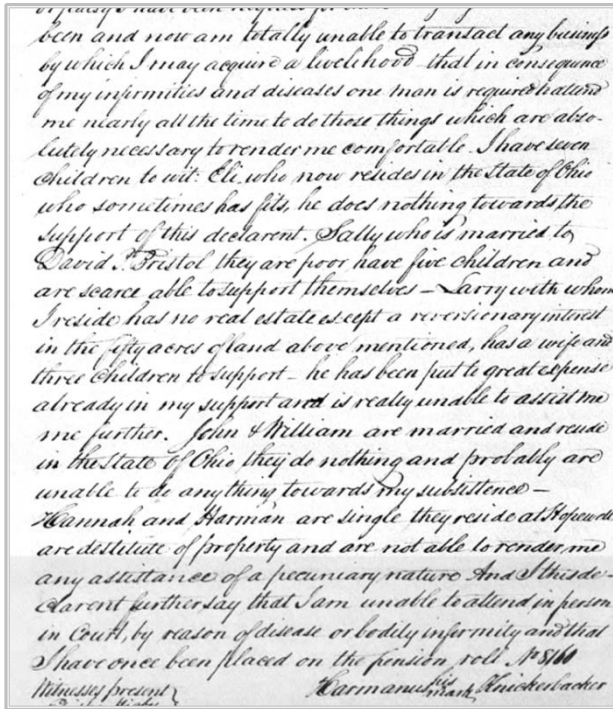 been and now am totally unable to transact any business
by which I may acquire a livelihood that in consequence
of my infirmities and diseases one man is required attend
me nearly all the time to do those things which are abso-
lutely necessary to render me comfortable. I have seven
children to wit. Eli who now resides in the state of Ohio
who sometimes has fits, he does nothing towards the
support of this declarent. Sally who is married to
David Pristol they are poor have five children and
are scarce able to support themselves – Larry with whom
I reside has no real estate except a reversionary interest
in the fifty acres of land above mentioned, has a wife and
three children to support – he has been put to great expense
already in my support and is really unable to assist me
me further. John & William are married and reside
in the State of Ohio they do nothing and probably are
unable to do any thing towards my subsistence –
Hannah and Harman are single they reside at Hopewell
are destitute of property and are not able to render me
any assistance of a pecuniary nature And I this de-
clarent further say that I am unable to attend in person
in Court, by reason of disease or bodily infirmity and that
I have once been placed on the pension roll No 8160
Witnesses present Harmanus his mark Knickerbacker